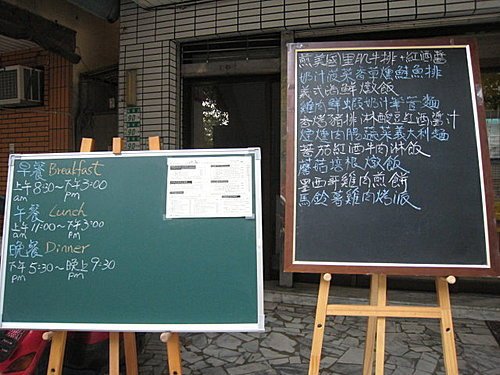 早餐 Breakfast
上午8:30~下午3:00
am pm
午餐 Lunch
上午11:00~下午3:00
am pm
晚餐 Dinner
下午5:30~晚上9:30
pm pm
煎美國里肌牛排+紅酒醬
奶汁菠菜香草燻鮭魚排
美式海鮮燉飯
雞肉鮮蝦奶汁筆管麵
香烤豬排淋酸豆紅酒醬汁
煙燻肉腸蔬菜義大利麵
蕃茄紅酒牛肉淋飯
蘑菇培根燉飯
墨西哥雞肉煎餅
馬鈴薯雞肉烤飯